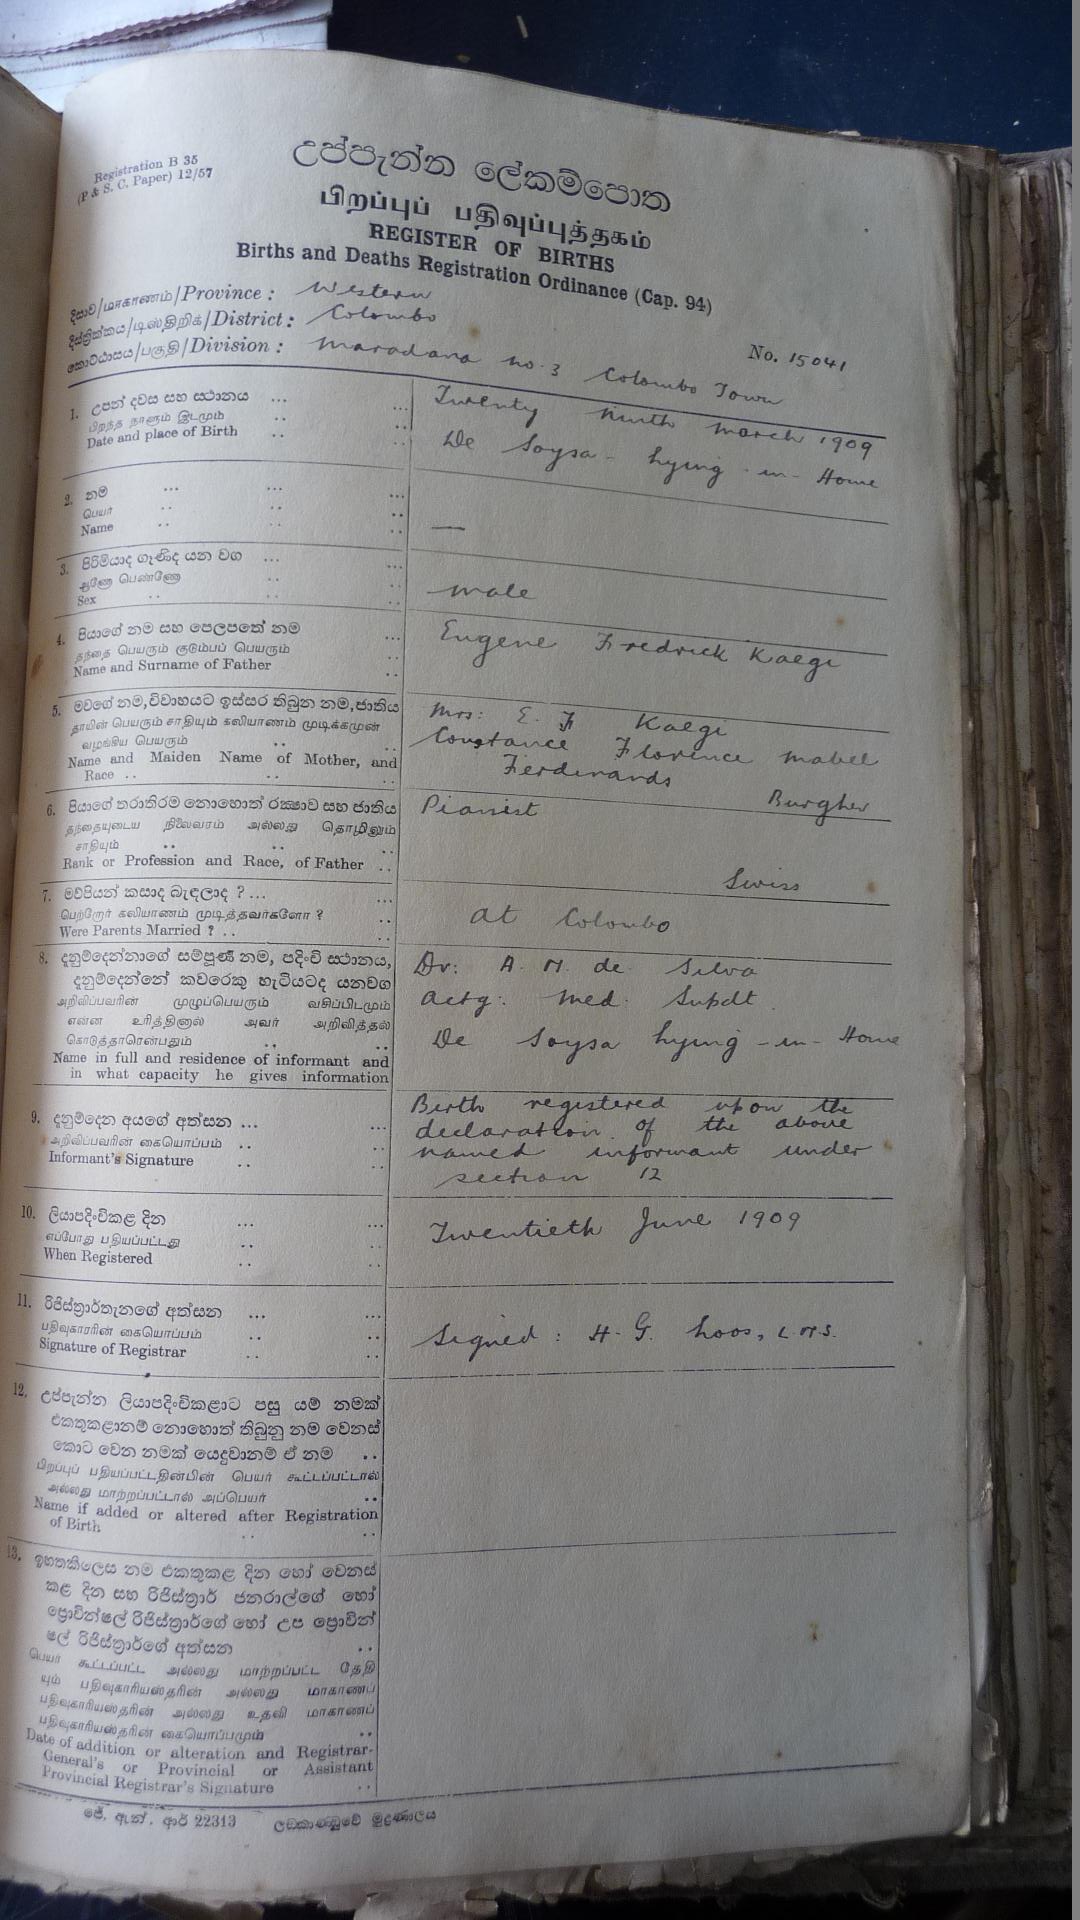 Registration B 35
(P & S. C. Paper) 12/57
උප්පැන්න ලේකම්පොත
பிறப்புப் பதிவுப்புத்தகம்
REGISTER OF BIRTHS
Births and Deaths Registration Ordinance (Cap. 94)
දිසාව/மாகாணம்/Province : Western
දිස්ත්‍රික්කය/டிஸ்திறிக்/District : Colombo
කොට්ඨාසය/பகுதி/Division : Maradana No. 3 Colombo Town
No. 15041
1. උපන් දවස සහ ස්ථානය ... ...
பிறந்த நாளும் இடமும் .. ..
Date and place of Birth .. ..
Twenty Ninth March 1909
De Soysa - Lying - in - Home
2. නම ... ... ...
பெயர் .. .. ..
Name .. .. ..
—
3. පිරිමියාද ගෑණිද යන වග ... ...
ஆணோ பெண்ணோ .. ..
Sex .. .. ..
Male
4. පියාගේ නම සහ පෙලපතේ නම ...
தந்தை பெயரும் குடும்பப் பெயரும் ..
Name and Surname of Father ..
Eugene Fredrick Kaegi
5. මවගේ නම, විවාහයට ඉස්සර තිබුන නම, ජාතිය
தாயின் பெயரும் சாதியும் கலியாணம் முடிக்கமுன்
வழங்கிய பெயரும் .. ..
Name and Maiden Name of Mother, and
Race .. .. ..
Mrs: E. F Kaegi
Constance Florence Mabel
Ferdinands
Burgher
6. පියාගේ තරාතිරම නොහොත් රක්‍ෂාව සහ ජාතිය
தந்தையுடைய நிலைவரம் அல்லது தொழிலும்
சாதியும் .. .. ..
Rank or Profession and Race, of Father ..
Pianist
Swiss
7. මව්පියන් කසාද බැඳලාද ? ... ...
பெற்றோர் கலியாணம் முடித்தவர்களோ ? ..
Were Parents Married ? .. ..
At Colombo
8. දැනුම්දෙන්නාගේ සම්පූර්‍ණ නම, පදිංචි ස්ථානය,
දැනුම්දෙන්නේ කවරෙකු හැටියටද යනවග
அறிவிப்பவரின் முழுப்பெயரும் வசிப்பிடமும்
என்ன உரித்தினால் அவர் அறிவித்தல்
கொடுத்தாரென்பதும் .. ..
Name in full and residence of informant and
in what capacity he gives information
Dr: A. M. de Silva
Actg: Med. Supdt
De Soysa Lying - in - Home
9. දැනුම්දෙන අයගේ අත්සන ... ...
அறிவிப்பவரின் கையொப்பம் .. ..
Informant's Signature .. ..
Birth registered upon the
declaration of the above
named informant under
section 12
10. ලියාපදිංචිකළ දින ... ...
எப்போது பதியப்பட்டது .. ..
When Registered .. ..
Twentieth June 1909
11. රිජිස්ත්‍රාර්තැනගේ අත්සන ... ...
பதிவுகாரரின் கையொப்பம் .. ..
Signature of Registrar .. ..
Signed : H. G. Loos, L.M.S.
12. උප්පැන්න ලියාපදිංචිකළාට පසු යම් නමක්
එකතුකළානම් නොහොත් තිබුනු නම වෙනස්
කොට වෙන නමක් යෙදුවානම් ඒ නම ..
பிறப்புப் பதியப்பட்டதின்பின் பெயர் கூட்டப்பட்டால்
அல்லது மாற்றப்பட்டால் அப்பெயர் ..
Name if added or altered after Registration
of Birth .. ..
13. ඉහතකිලෙස නම එකතුකළ දින හෝ වෙනස්
කළ දින සහ රිජිස්ත්‍රාර් ජනරාල්ගේ හෝ
ප්‍රොවින්ෂල් රිජිස්ත්‍රාර්ගේ හෝ උප ප්‍රොවින්
ෂල් රිජිස්ත්‍රාර්ගේ අත්සන ..
பெயர் கூட்டப்பட்ட அல்லது மாற்றப்பட்ட தேதி
யும் பதிவுகாரியஸ்தரின் அல்லது மாகாணப்
பதிவுகாரியஸ்தரின் அல்லது உதவி மாகாணப்
பதிவுகாரியஸ்தரின் கையொப்பமும் ..
Date of addition or alteration and Registrar-
General's or Provincial or Assistant
Provincial Registrar's Signature ..
ජේ. ඇන්. ආර් 22313 ලංකාණ්ඩුවේ මුද්‍රණාලය